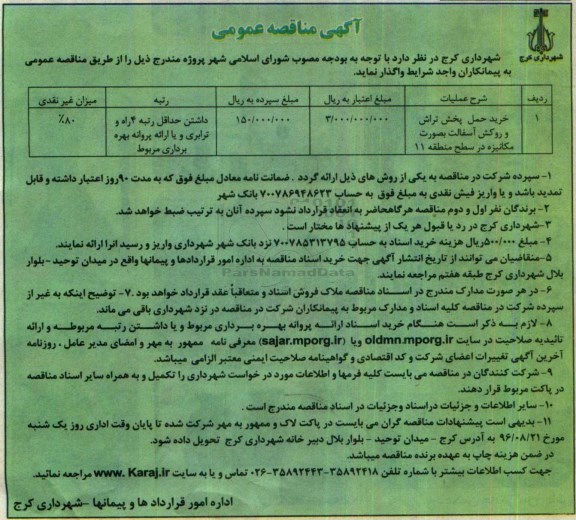 آگهی مناقصه عمومی
شهرداری کرج
شهرداری کرج در نظر دارد با توجه به بودجه مصوب شورای اسلامی شهر پروژه مندرج ذیل را از طریق مناقصه عمومی
به پیمانکاران واجد شرایط واگذار نماید.
ردیف شرح عملیات مبلغ اعتبار به ریال مبلغ سپرده به ریال رتبه میزان غیر نقدی
۱ خرید حمل پخش تراش ۳/۰۰۰/۰۰۰/۰۰۰ ۱۵۰/۰۰۰/۰۰۰ داشتن حداقل رتبه ۴راه و ۸۰٪
و روکش آسفالت بصورت ترابری و یا ارائه پروانه بهره
مکانیزه در سطح منطقه ۱۱ برداری مربوط
۱- سپرده شرکت در مناقصه به یکی از روش های ذیل ارائه گردد . ضمانت نامه معادل مبلغ فوق که به مدت ۹۰روز اعتبار داشته و قابل
تمدید باشد و یا واریز فیش نقدی به مبلغ فوق به حساب ۷۰۰۷۸۶۹۴۸۶۲۳ بانک شهر
۲- برندگان نفر اول و دوم مناقصه هرگاهحاضر به انعقاد قرارداد نشود سپرده آنان به ترتیب ضبط خواهد شد.
۳-شهرداری کرج در رد یا قبول هر یک از پیشنهاد ها مختار است .
۴- مبلغ ۵۰۰/۰۰۰ریال هزینه خرید اسناد به حساب ۷۰۰۷۸۵۳۱۳۷۹۵ نزد بانک شهر شهرداری واریز و رسید انرا ارائه نمایند.
۵-متقاضیان می توانند از تاریخ انتشار آگهی جهت خرید اسناد مناقصه به اداره امور قراردادها و پیمانها واقع در میدان توحید -بلوار
بلال شهرداری کرج طبقه هفتم مراجعه نمایند.
ParsNamadData
۶- در هر صورت مدارک مندرج در اسناد مناقصه ملاک فروش اسناد و متعاقباً عقد قرارداد خواهد بود .۷- توضیح اینکه به غیر از
سپرده شرکت در مناقصه کلیه اسناد و مدارک مربوط به پیمانکاران شرکت در مناقصه در نزد شهرداری باقی می ماند.
۸- لازم به ذکر است هنگام خرید اسناد ارائه پروانه بهره برداری مربوط و یا داشتن رتبه مربوطه و ارائه
تائیدیه صلاحیت در سایت oldmn.mporg.ir ویا (sajar.mporg.ir) معرفی نامه ممهور به مهر و امضای مدیر عامل ، روزنامه
آخرین آگهی تغییرات اعضای شرکت و کد اقتصادی و گواهینامه صلاحیت ایمنی معتبر الزامی میباشد.
۹- شرکت کنندگان در مناقصه می بایست کلیه فرمها و اطلاعات مورد در خواست شهرداری را تکمیل و به همراه سایر اسناد مناقصه
در پاکت مربوط قرار دهند.
۱۰- سایر اطلاعات و جزئیات دراسناد وجزئیات در اسناد مناقصه مندرج است .
۱۱- بدیهی است پیشنهادات مناقصه گران می بایست در پاکت لاک و ممهور به مهر شرکت شده تا پایان وقت اداری روز یک شنبه
مورخ ۹۶/۰۸/۲۱ به آدرس کرج - میدان توحید - بلوار بلال دبیر خانه شهرداری کرج تحویل داده شود.
در ضمن هزینه چاپ به عهده برنده مناقصه میباشد.
جهت کسب اطلاعات بیشتر با شماره تلفن ۳۵۸۹۲۴۱۸-۳۵۸۹۲۴۴۳-۰۲۶ تماس و یا به سایت www. Karaj.ir مراجعه نمائید.
اداره امور قرارداد ها و پیمانها -شهرداری کرج